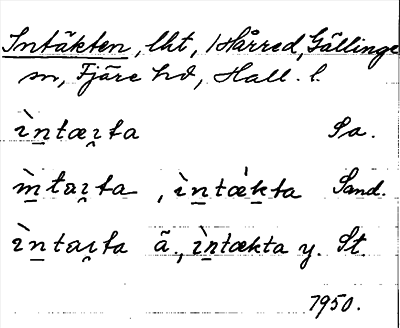 Intäkten, lht, Hårred, Gällinge
sn, Fjäre hd, Hall. l.
ìn̲tæɪ̯ta Pa.
ìn̲taɪ̯ta, ìn̲tæ̀k̲ta Sand.
ìn̲taɪ̯ta ä., ìn̲tækta y. St.
1950.